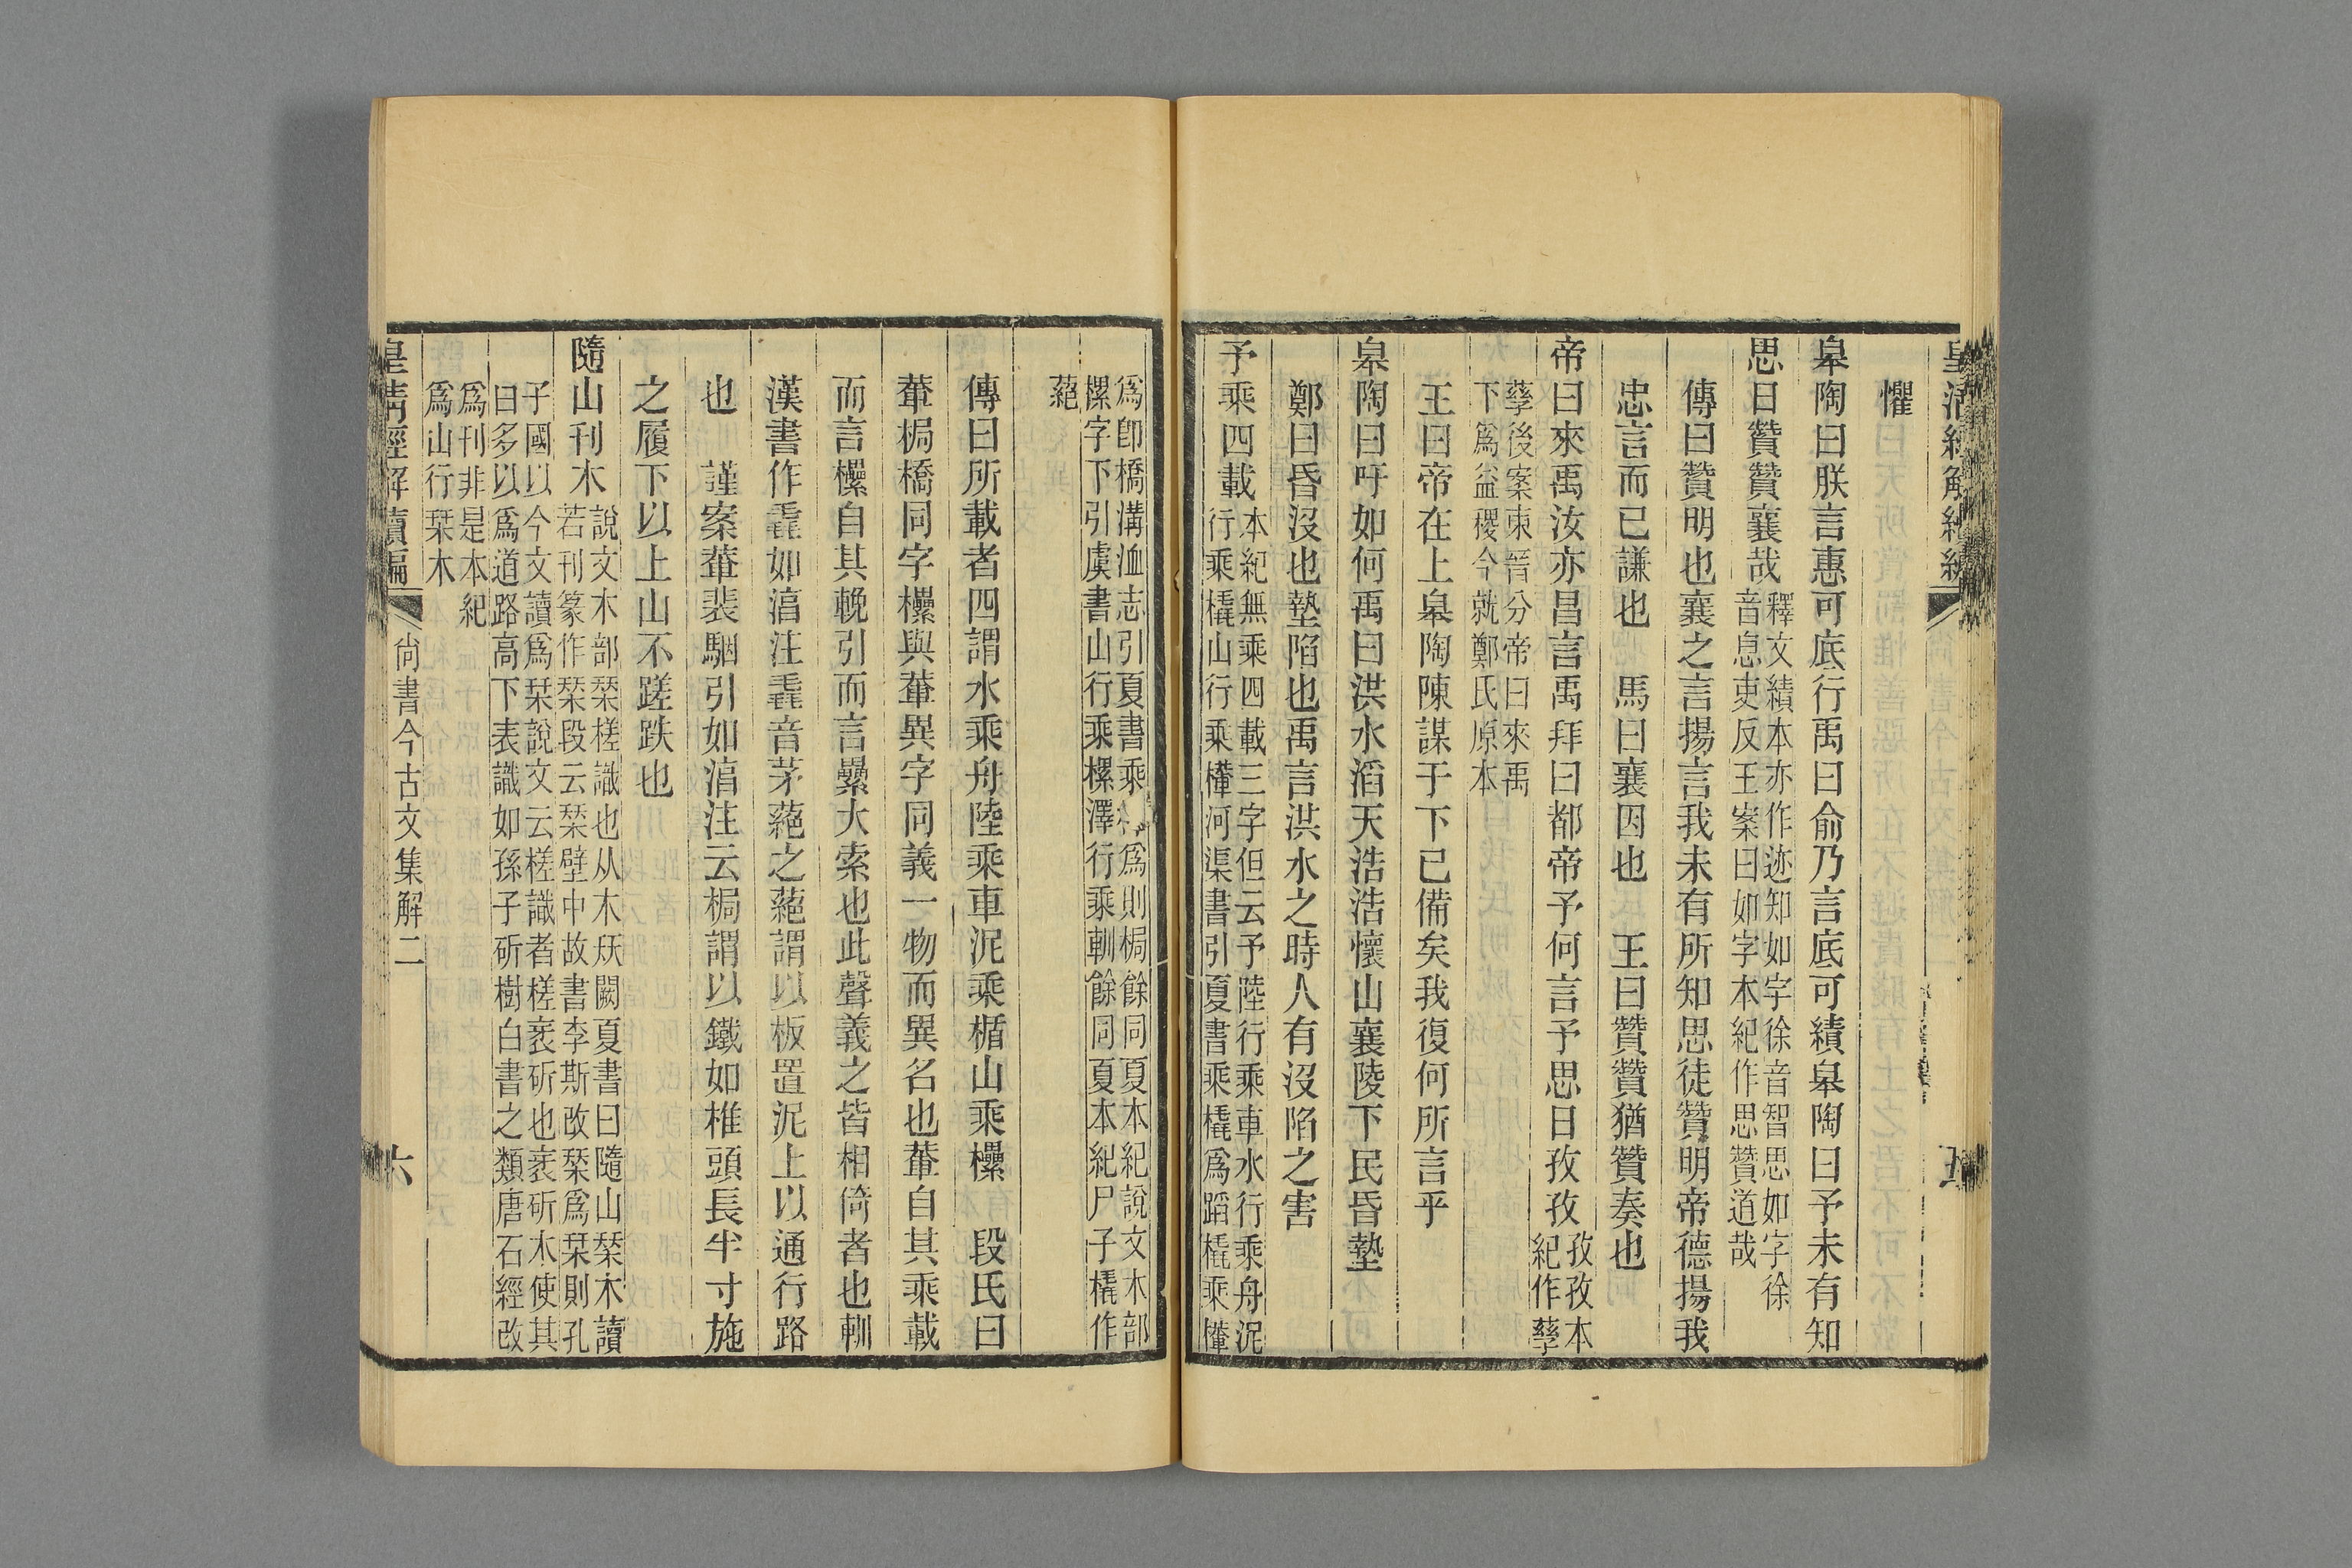 懼
皋陶曰朕言惠可底行禹曰俞乃言底可績皋陶曰予未有知
思曰贊贊襄哉
釋文績本亦作迹知如字徐音智思如字徐
音息吏反王案曰如字本紀作思贊道哉
傳曰贊明也襄之言揚言我未有所知思徒贊明帝德揚我
忠言而已謙也 馬曰襄因也 王曰贊贊猶贊奏也
帝曰來禹汝亦昌言禹拜曰都帝予何言予思日孜孜
孜孜本
紀作孳
孳後案東晉分帝曰來禹
下爲益稷今就鄭氏原本
王曰帝在上皋陶陳謀于下已備矣我復何所言乎
皋陶曰吁如何禹曰洪水滔天浩浩懷山襄陵下民昏墊
鄭曰昏沒也墊陷也禹言洪水之時人有沒陷之害
予乘四載
本紀無乘四載三字但云予陸行乘車水行乘舟泥
行乘橇山行乘檋河渠書引夏書乘橇爲蹈橇乘檋
爲卽橋溝洫志引夏書乘 爲則梮餘同夏本紀說文木部
樏字下引虞書山行乘樏澤行乘輴餘同夏本紀尸子橇作
蕝
傳曰所載者四謂水乘舟陸乘車泥乘楯山乘欙 段氏曰
輂梮橋同字欙與輂異字同義一物而異名也輂自其乘載
而言欙自其輓引而言纍大索也此聲義之皆相倚者也輴
漢書作毳如淳注毳音茅蕝之蕝謂以板置泥上以通行路
也 謹案輂裴駰引如淳注云梮謂以鐵如椎頭長半寸施
之履下以上山不蹉跌也
隨山刊木
說文木部栞槎識也从木㚏闕夏書曰隨山栞木讀
若刊篆作栞段云栞壁中故書李斯改栞爲栞則孔
子國以今文讀爲栞說文云槎識者槎衺斫也衺斫木使其
曰多以爲道路高下表識如孫子斫樹白書之類唐石經改
爲刊非是本紀
爲山行栞木
皇清經解續編
尚書今古文集解二
六